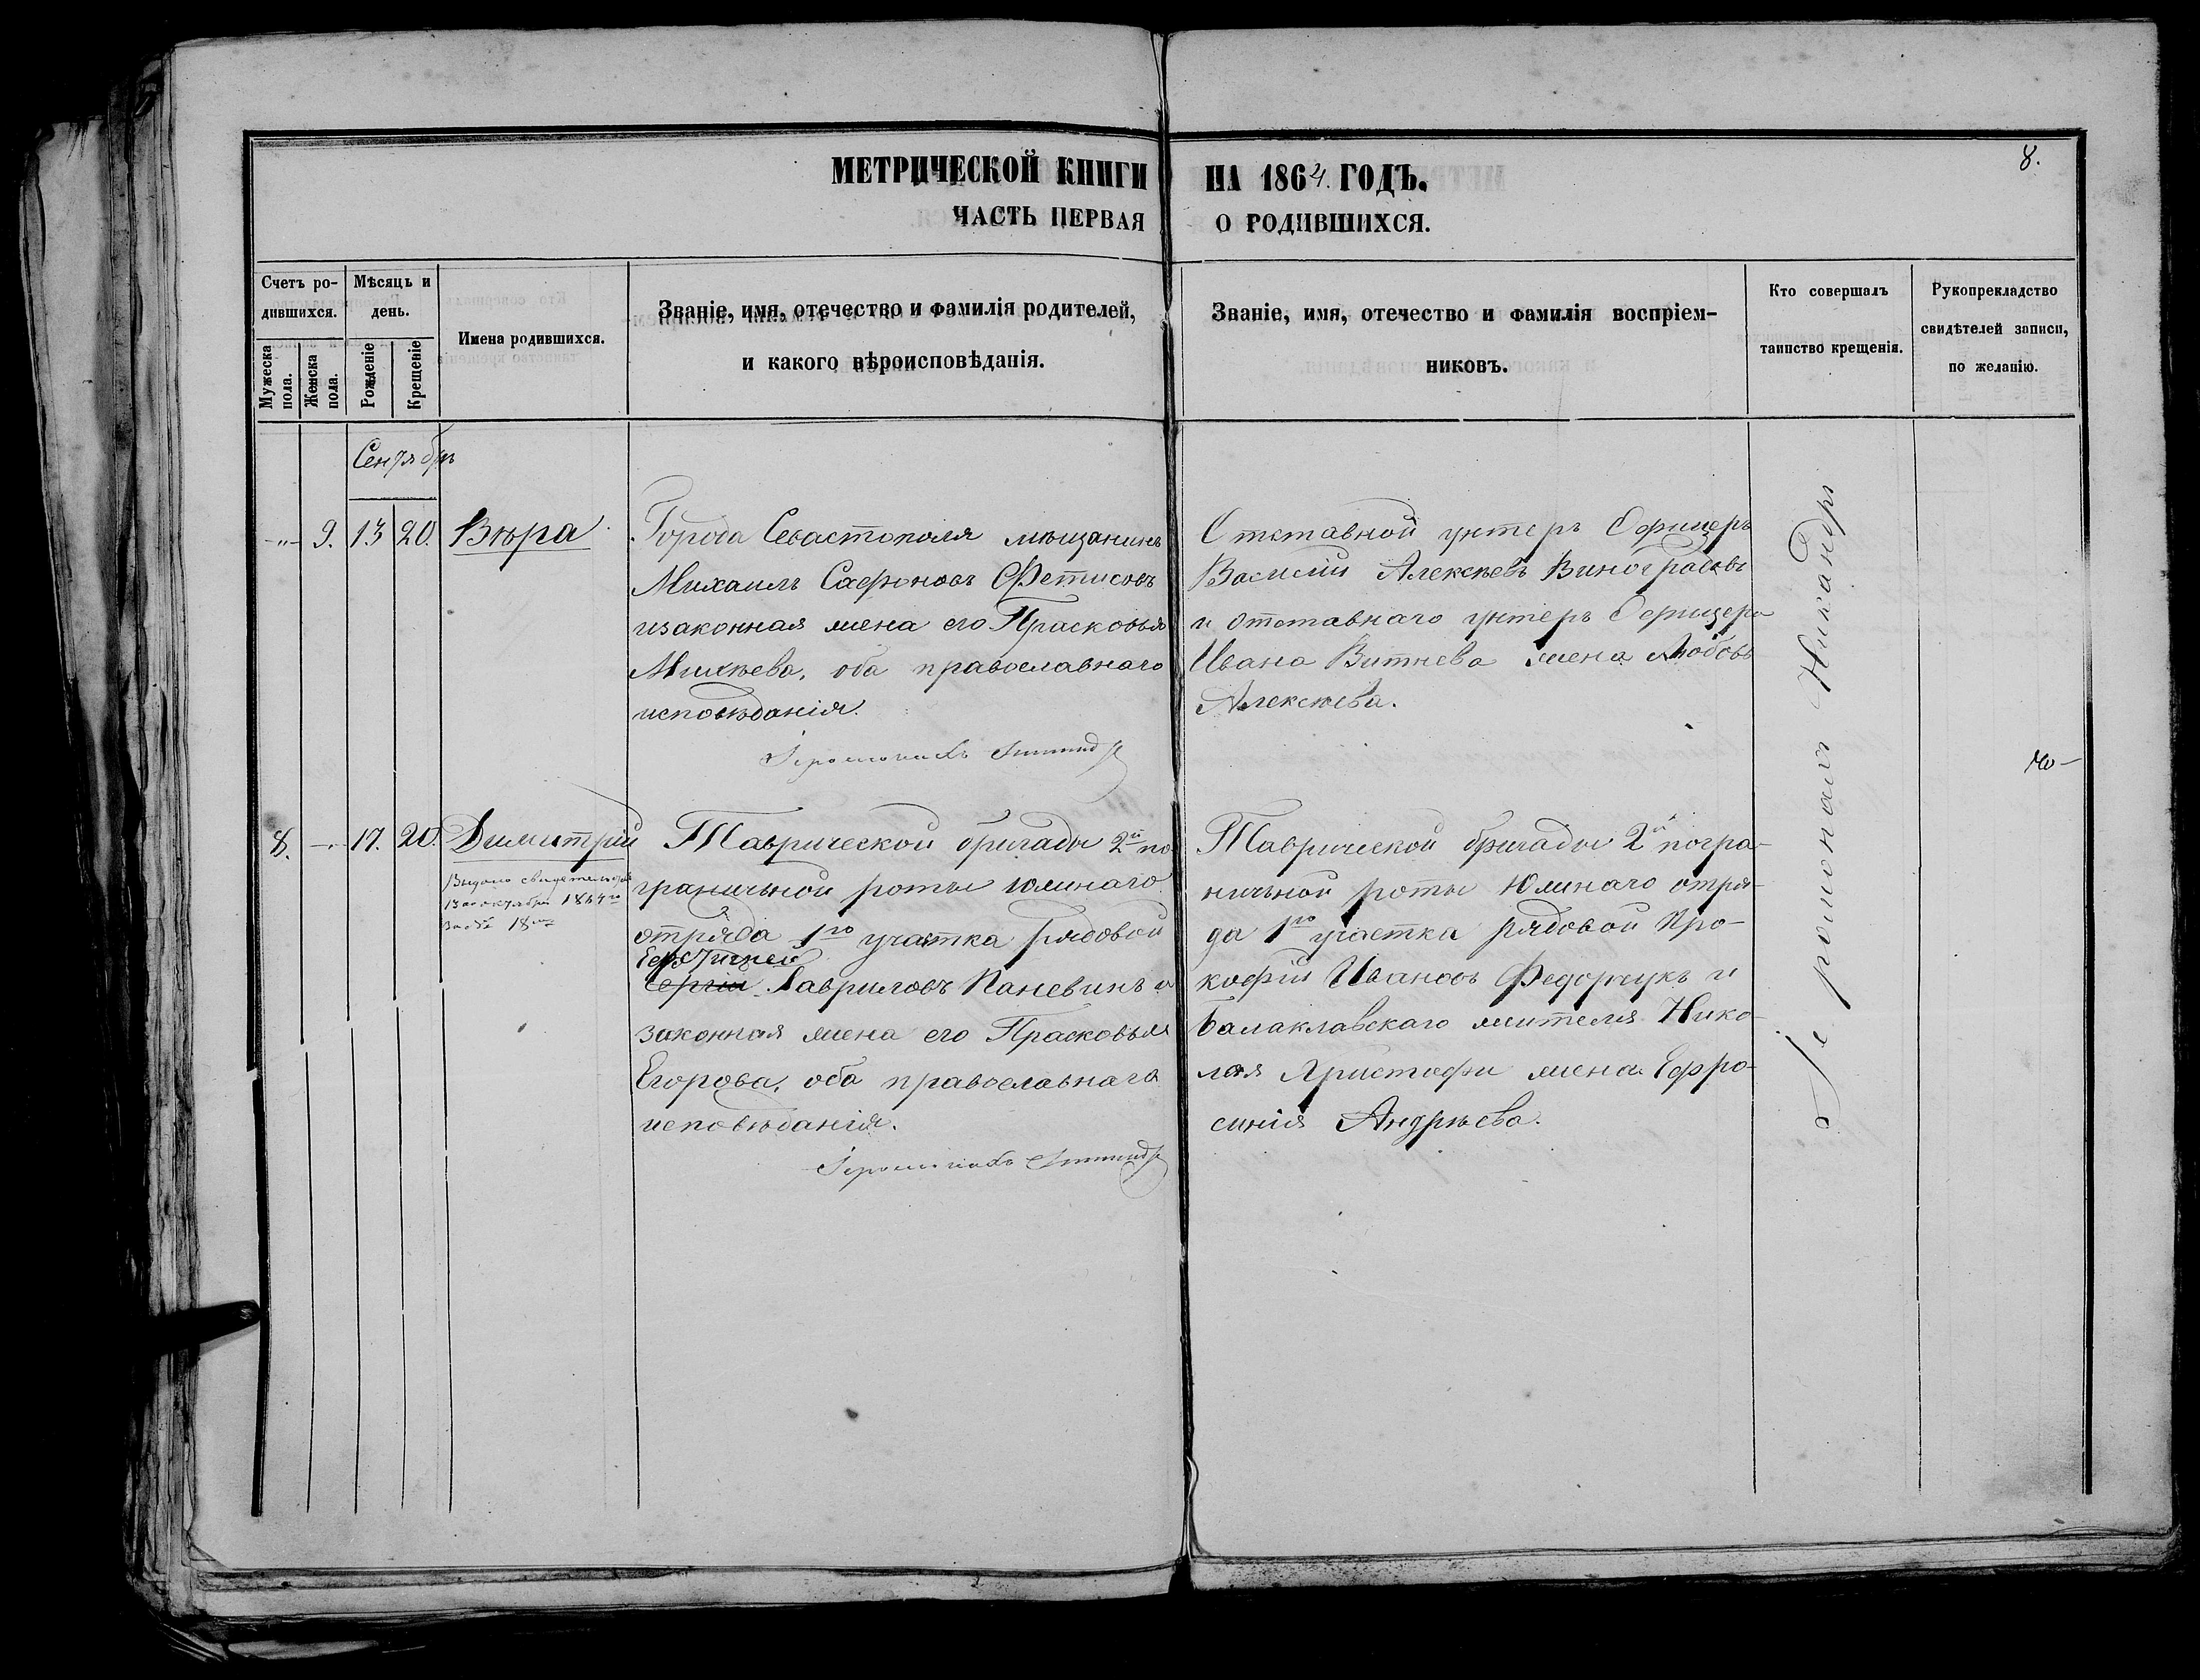 МЕТРИЧЕСКОЙ КНИГИ НА 1864. ГОДЪ.
8.
ЧАСТЬ ПЕРВАЯ О РОДИВШИХСЯ.
Счетъ ро-
дившихся.
Мужеска
пола.
Женска
пола.
Мѣсяцъ и
день.
Рожденіе
Крещеніе
Имена родившихся.
Званіе, имя, отечество и фамилія родителей,
и какого вѣроисповѣданія.
Званіе, имя, отечество и фамилія воспріем-
никовъ.
Кто совершалъ
таинство крещенія.
Рукопрекладство
свидѣтелей записи,
по желанію.
Сентябрь
-"- 9. 13 20. Вѣра
Города Севастополя мѣщанинъ
Михаилъ Сафоновъ Фетисовъ
изаконная жена его Прасковья
Михѣева, оба православнаго
исповѣданія.
Іеромонахъ
Отставной унтеръ Офицеръ
Василій Алексѣевъ Виноградовъ
и отставнаго унтеръ Офицера
Ивана Витнева жена Любовь
Алексѣева.
Іеромонахъ Никандръ
8. -"- 17. 20. Димитрій
Выдано свидетельство
13го октября 1864го
за № 18мъ
Таврической бригады 2й по-
граничной роты южнаго
отряда 1го участка рядовой
Евстигней
Сергій Гавриловъ Паневинъ и
законная жена его Прасковья
Егорова, оба православнаго
исповѣданія.
Іеромонахъ
Таврической бригады 2й погра-
ничной роты Южнаго отря-
да 1го участка рядовой Про-
кофій Ивановъ Федорчукъ и
Балаклавскаго жителя Нико-
лая Христофи жена Ефро-
синія Андрѣева.